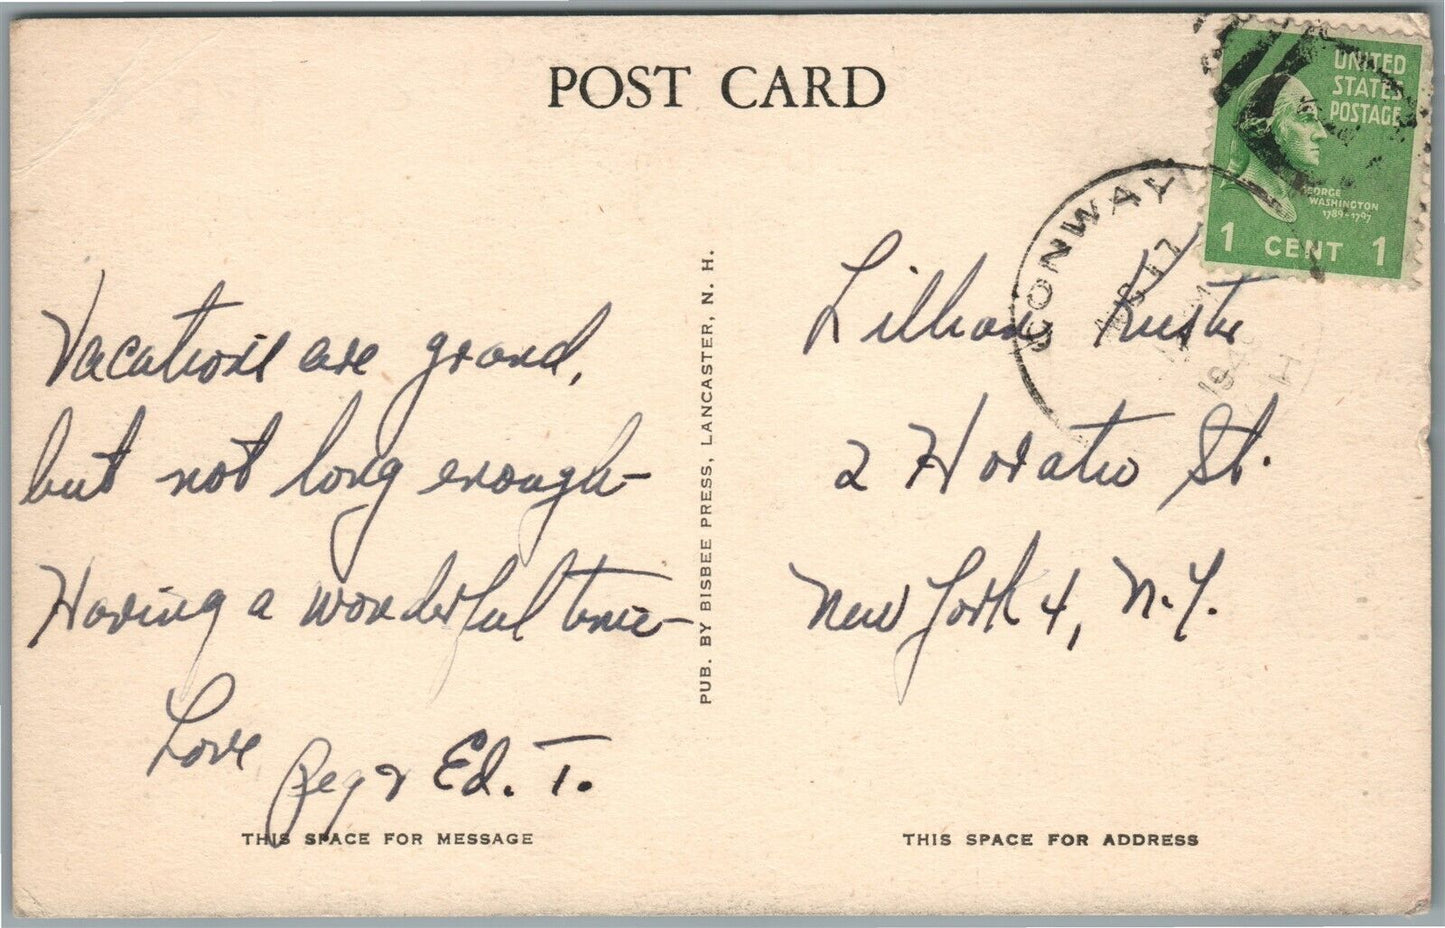 POST CARD
UNITED
STATES
POSTAGE
GEORGE
WASHINGTON
1789-1797
1 CENT 1
CONWAY
AUG 17
Vacations are grand,
but not long enough-
Having a wonderful time-
Love
Peg & Ed. T.
PUB. BY BISBEE PRESS, LANCASTER, N. H.
Lillian
2 Horatio St.
New York 4, N.Y.
THIS SPACE FOR MESSAGE
THIS SPACE FOR ADDRESS